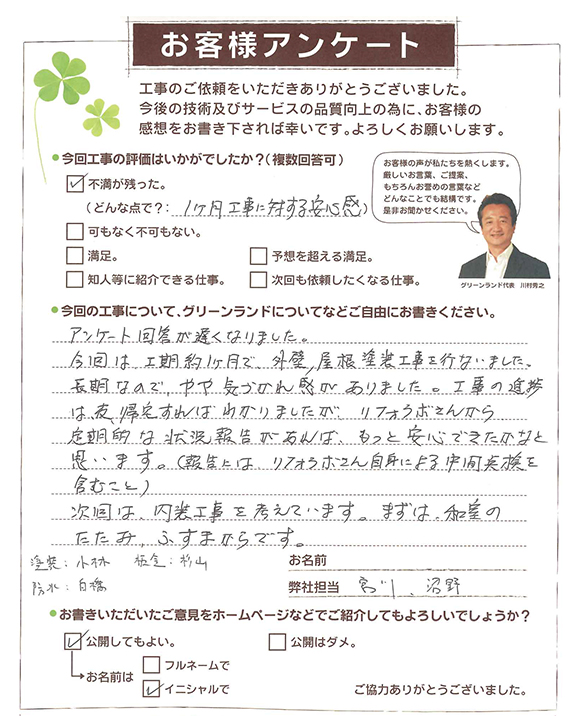 お客様アンケート
工事のご依頼をいただきありがとうございました。
今後の技術及びサービスの品質向上の為に、お客様の
感想をお書き下されば幸いです。よろしくお願いします。
●今回工事の評価はいかがでしたか？（複数回答可）
不満が残った。
（どんな点で？： 1ヶ月工事に対する安心感）
可もなく不可もない。
満足。
予想を超える満足。
知人等に紹介できる仕事。
次回も依頼したくなる仕事。
お客様の声が私たちを熱くします。
厳しいお言葉、ご提案、
もちろんお誉めの言葉など
どんなことでも結構です。
是非お聞かせください。
グリーンランド代表 川村秀之
●今回の工事について、グリーンランドについてなどご自由にお書きください。
アンケート回答が遅くなりました。
今回は、工期約1ヶ月で、外壁,屋根塗装工事を行ないました。
長期なので、やや気づかれ感がありました。工事の進捗
は夜、帰宅すればわかりましたが、リフォラボさんから
定期的な状況報告があれば、もっと安心できたかなと
思います。（報告には、リフォラボさん自身による中間点検を
含むこと）
次回は、内装工事を考えています。まずは、和室の
たたみ、ふすまからです。
塗装：小林 板金：杉山
防水：白橋
お名前
弊社担当 宮川、沼野
●お書きいただいたご意見をホームページなどでご紹介してもよろしいでしょうか？
公開してもよい。
公開はダメ。
お名前は
フルネームで
イニシャルで
ご協力ありがとうございました。